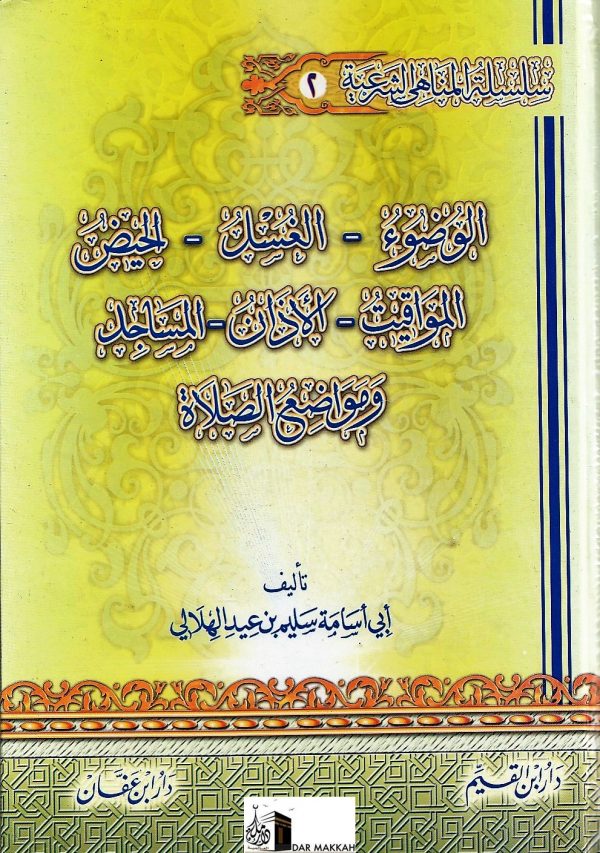 سلسلة المناهي الشرعية ٢
الوُضوُءُ - الغُسْلُ - الحَيْضُ
المَوَاقيتُ - الأَذَانُ - المسَاجِدُ
وَمَوَاضِعُ الصَّلَاةِ
تأليف
أبي أسامة سليم بن عيد الهلالي
دَارُ ابن القيِّم
دَارُ ابْن عَفَّان
DAR MAKKAH